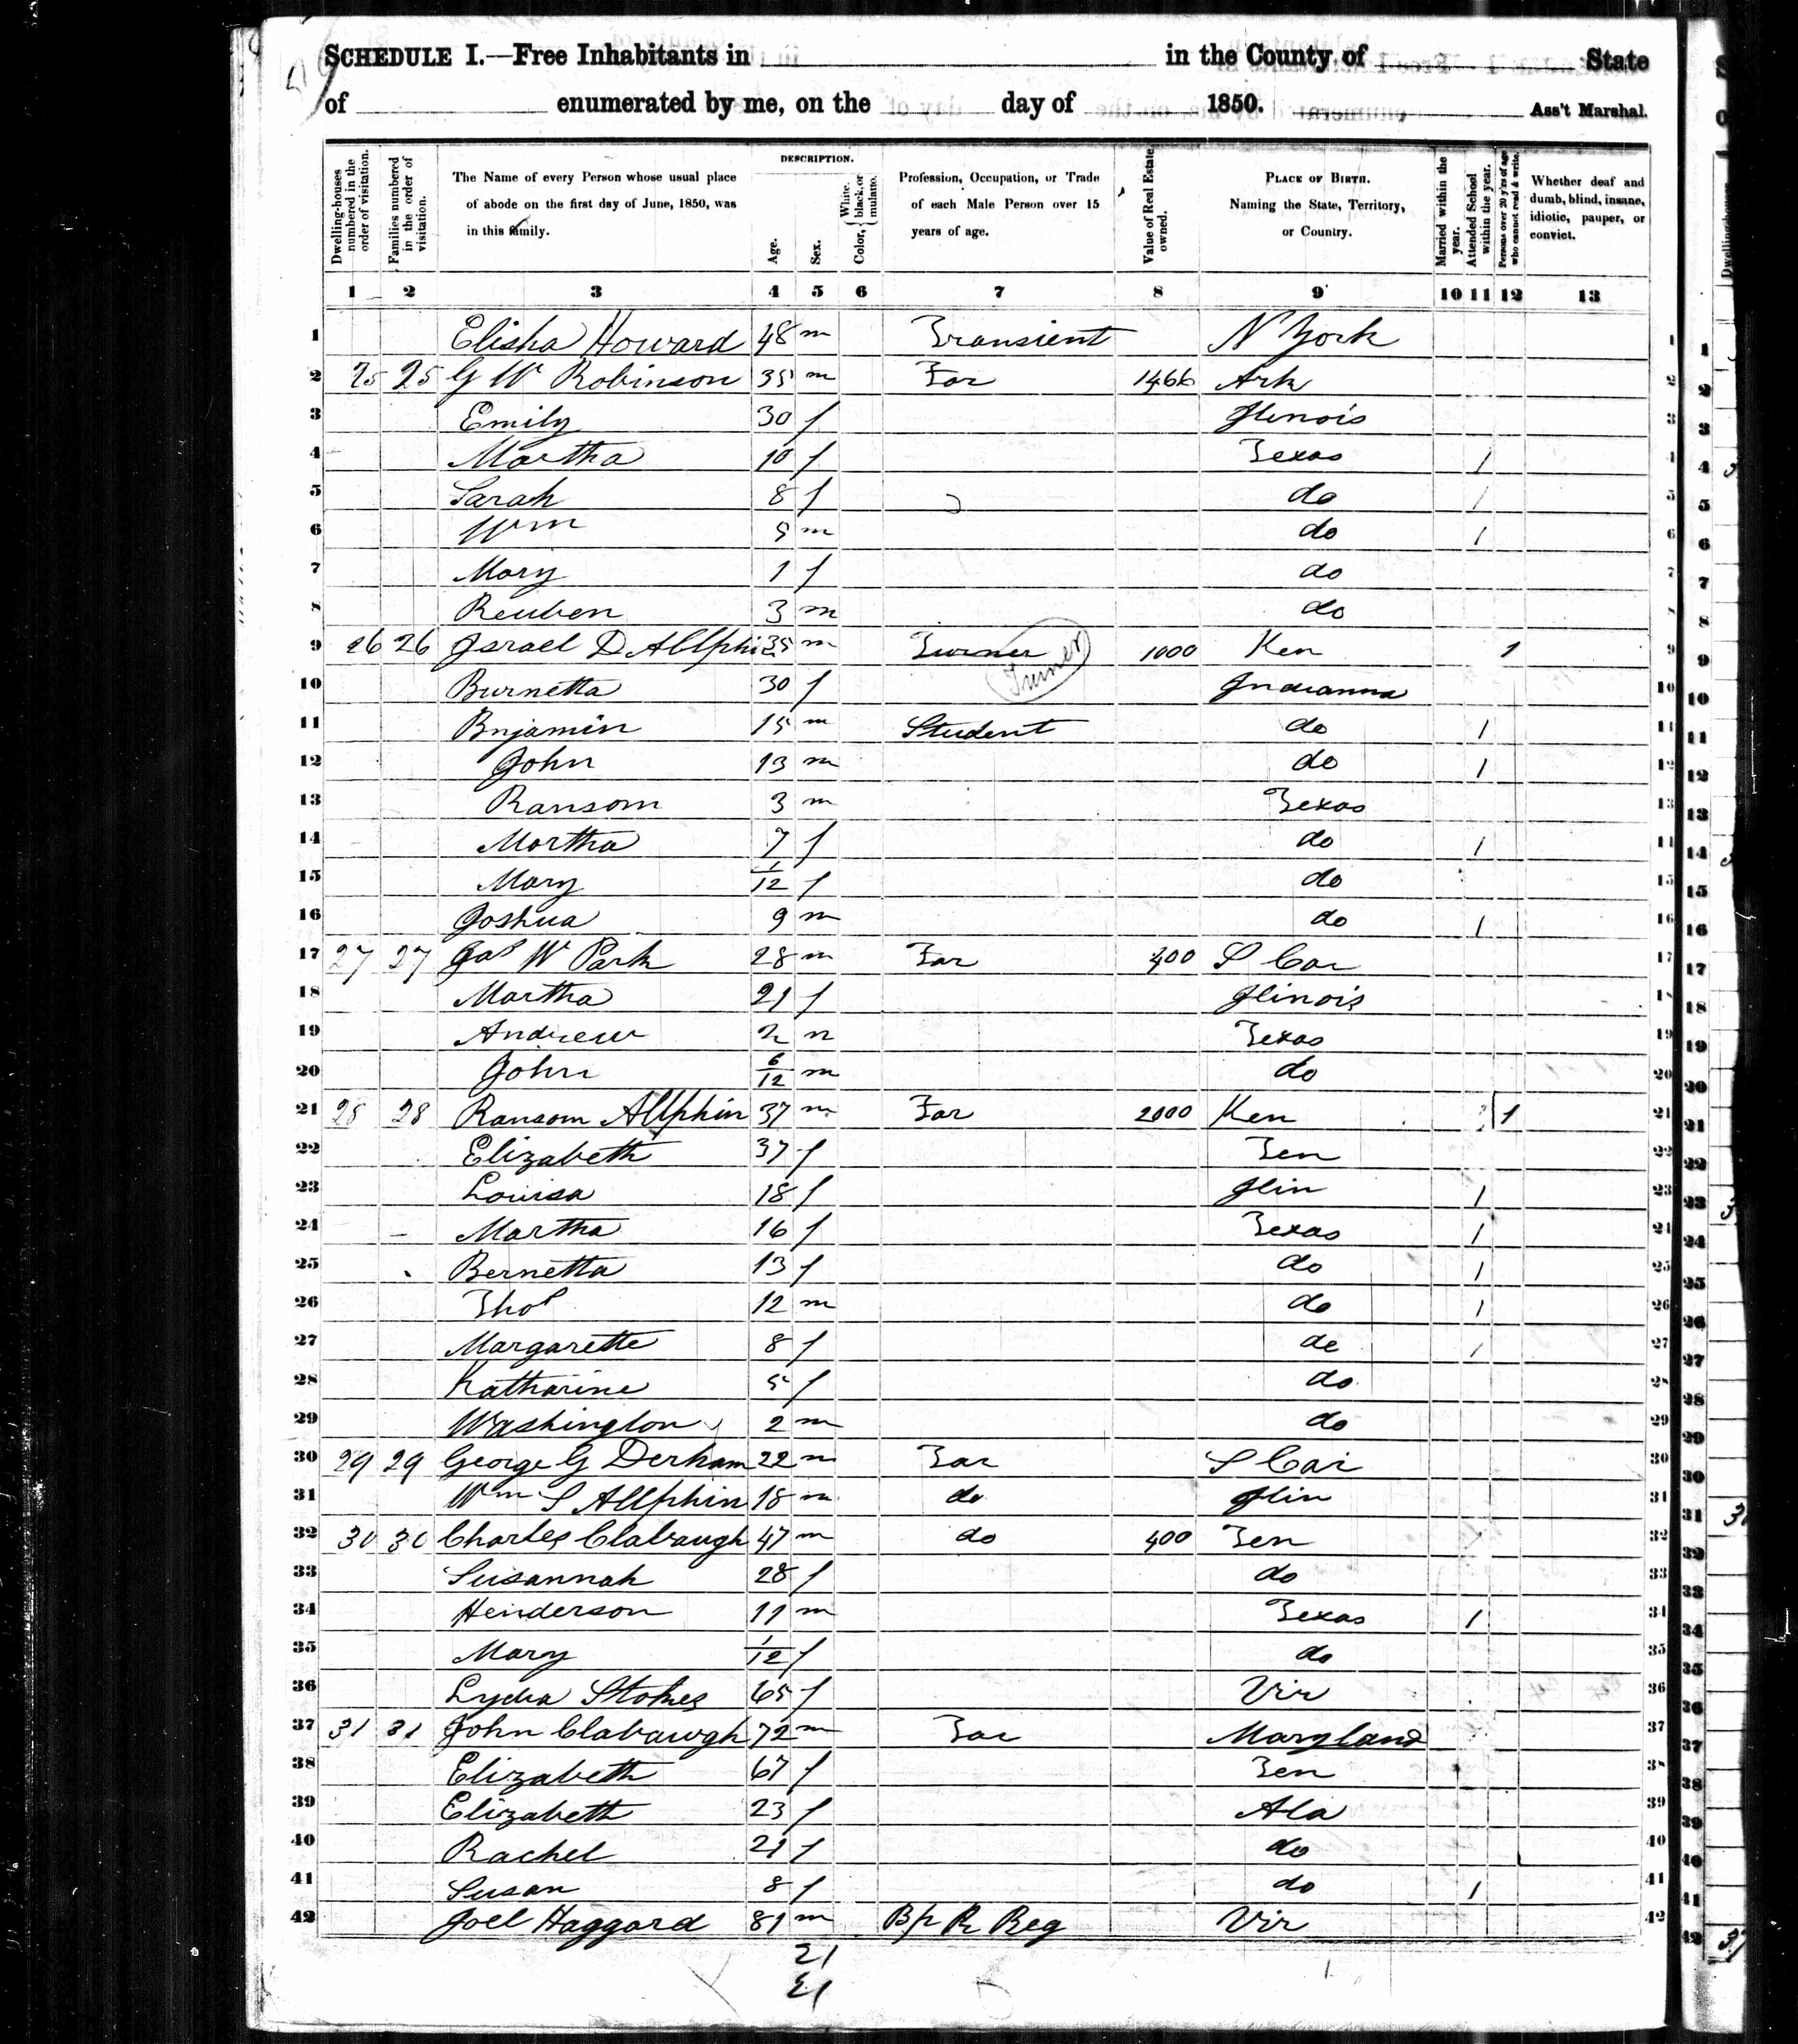 SCHEDULE I.—Free Inhabitants in in the County of State
of enumerated by me, on the day of 1850. Ass't Marshal.
Dwelling-houses numbered in the order of visitation.
Families numbered in the order of visitation.
The Name of every Person whose usual place of abode on the first day of June, 1850, was in this family.
DESCRIPTION.
Age.
Sex.
Color, { White, black, or mulatto.
Profession, Occupation, or Trade of each Male Person over 15 years of age.
Value of Real Estate owned.
PLACE OF BIRTH. Naming the State, Territory, or Country.
Married within the year.
Attended School within the year.
Persons over 20 y'rs of age who cannot read & write.
Whether deaf and dumb, blind, insane, idiotic, pauper, or convict.
1 2 3 4 5 6 7 8 9 10 11 12 13
1 Elisha Howard 48 m Transient N York 1
2 25 25 G W Robinson 35 m Far 1466 Ark 2
3 Emily 30 f Ilinois 3
4 Martha 10 f Texas 1 4
5 Sarah 8 f do 1 5
6 Wm 5 m do 1 6
7 Mary 1 f do 7
8 Reuben 3 m do 8
9 26 26 Israel D Allphin 35 m Turner 1000 Ken 1 9
Turner
10 Burnetta 30 f Indianna 10
11 Bnjamin 15 m Student do 1 11
12 John 13 m do 1 12
13 Ransom 3 m Texas 13
14 Martha 7 f do 1 14
15 Mary 1/12 f do 15
16 Joshua 9 m do 1 16
17 27 27 Jas W Park 28 m Far 400 S Car 17
18 Martha 21 f Ilinois 18
19 Andrew 2 m Texas 19
20 John 6/12 m do 20
21 28 28 Ransom Allphin 37 m Far 2000 Ken 1 21
22 Elizabeth 37 f Ten 22
23 Louisa 18 f Ilin 1 23
24 Martha 16 f Texas 1 24
25 Bernetta 13 f do 1 25
26 Thos 12 m do 1 26
27 Margarette 8 f do 1 27
28 Katharine 5 f do 28
29 Washington 2 m do 29
30 29 29 George G Derham 22 m Far S Car 30
31 Wm S Allphin 18 m do Ilin 31
32 30 30 Charles Clabaugh 47 m do 400 Ten 32
33 Susannah 28 f do 33
34 Henderson 11 m Texas 1 34
35 Mary 1/12 f do 35
36 Lydia Stokes 65 f Vir 36
37 31 31 John Clabawgh 72 m Far Maryland 37
38 Elizabeth 67 f Ten 38
39 Elizabeth 23 f Ala 39
40 Rachel 21 f do 40
41 Susan 8 f do 1 41
42 Joel Haggard 81 m Vir 42
21
21